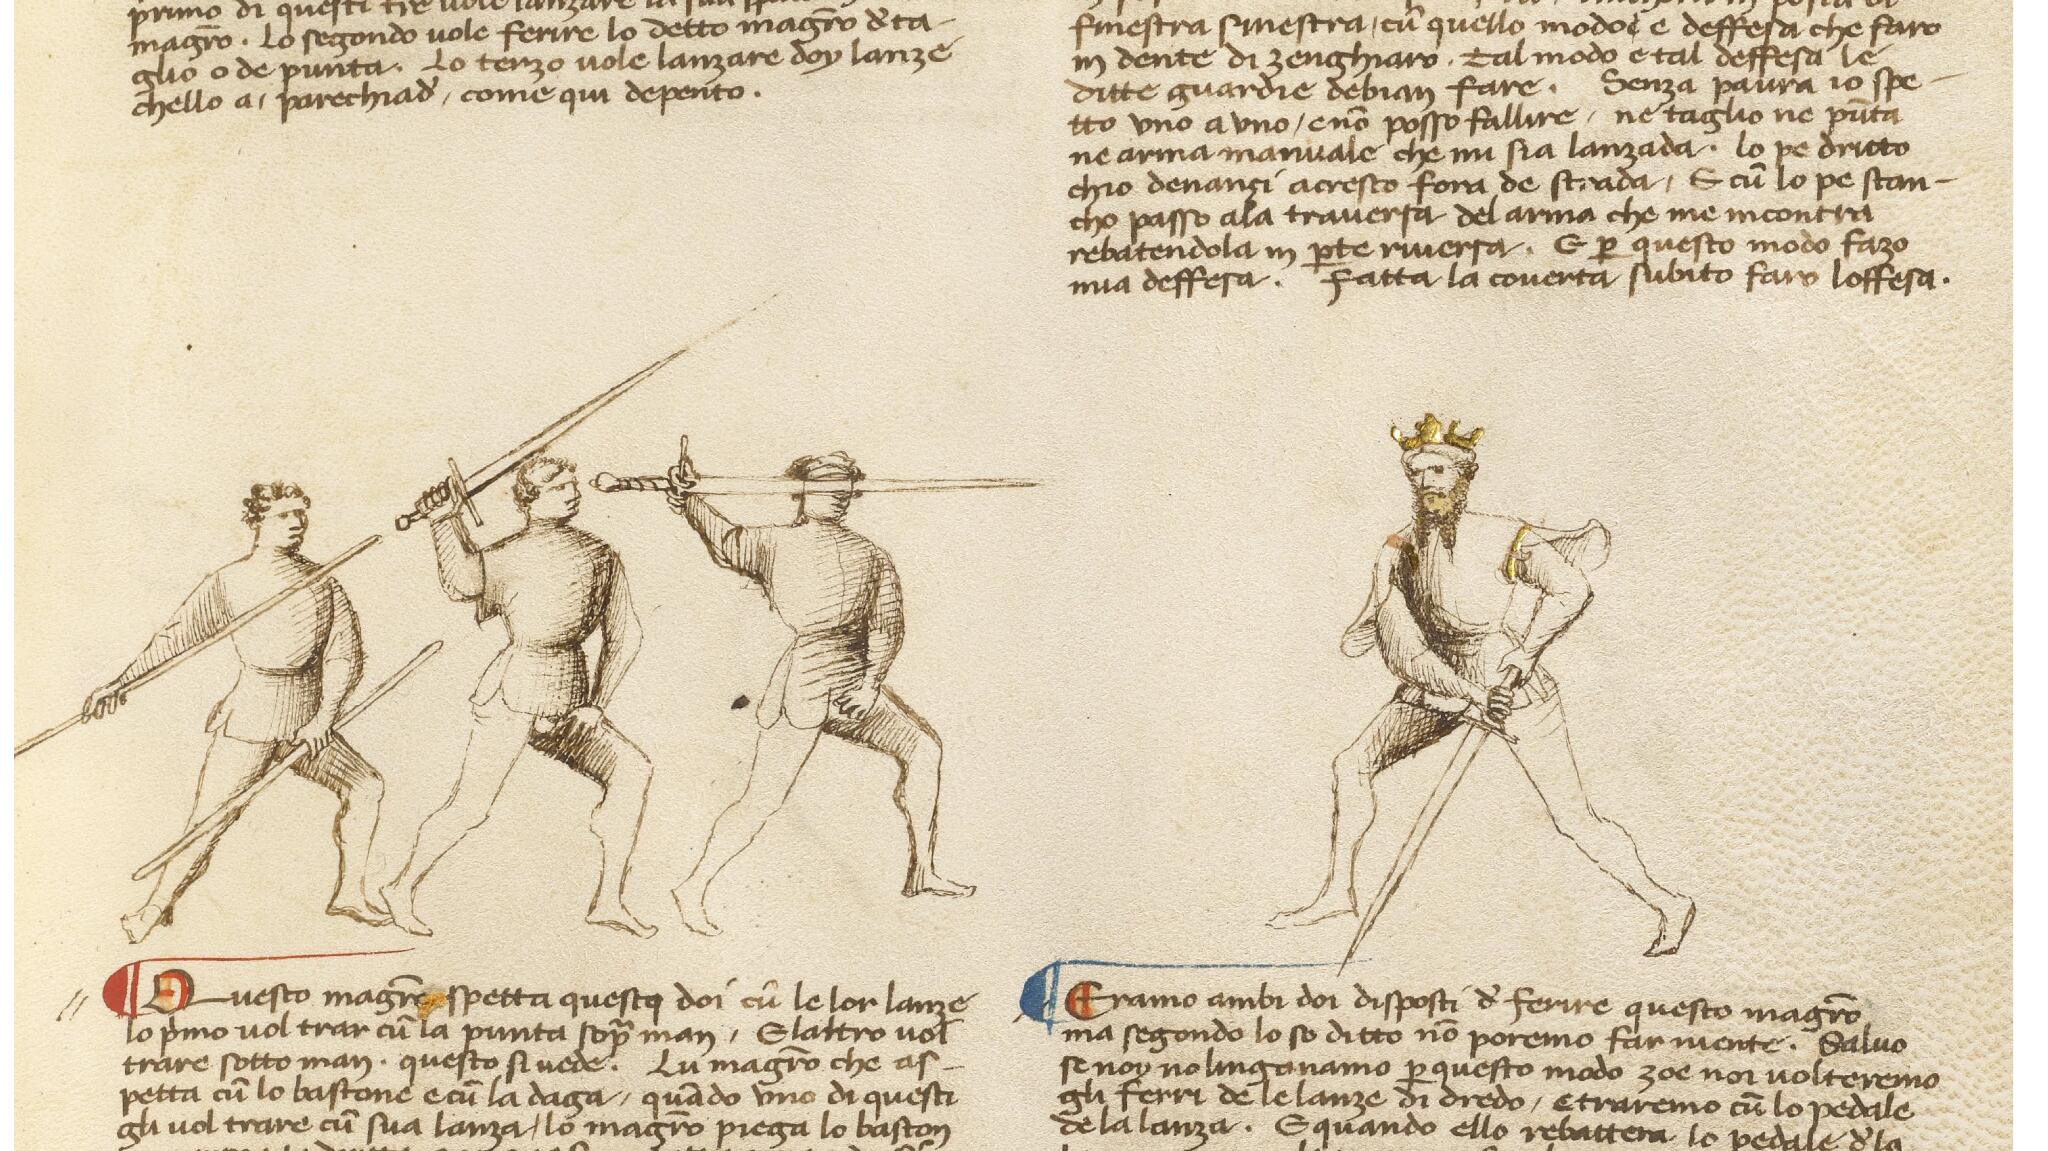 primo di questi tre vole lanzare la sua
magr̄o. Lo segondo vole ferire lo detto magr̄o d'ta-
glio o de punta. Lo terzo vole lanzare doy lanze
chello a, parechiad', come qui depento.
finestra sinestra, cū quello modo e deffesa che faro
in dente di zenghiaro. Tal modo e tal deffesa le
ditte guardie debian fare. Senza paura io spe-
tto uno a uno, e nō posso fallire, ne taglio ne pūta
ne arma manuale che mi sia lanzada. lo pe dritto
chio denanzi acresco fora de strada, E cū lo pe stan-
cho passo ala traversa del arma che me incontra
rebatendola in pte riversa. E p questo modo fazo
mia deffesa. Fatta la coverta subito faro loffesa.
Questo magr̄o spetta questi doi cū le lor lanze
lo pmo vol trar cū la punta sop̄ man, E laltro vol
trare sotto man. questo si vede. Lu magr̄o che as-
petta cū lo bastone e cū la daga, quādo uno di questi
gli vol trare cū sua lanza, lo magr̄o piega lo baston
Eramo ambi doi disposti d' ferire questo magr̄o
ma segondo lo so ditto nō poremo far niente. Salvo
se noy no linganamo p questo modo zoe noi volteremo
gli ferri de le lanze di dredo, e traremo cū lo pedale
de la lanza. E quando ello rebattera lo pedale d' la